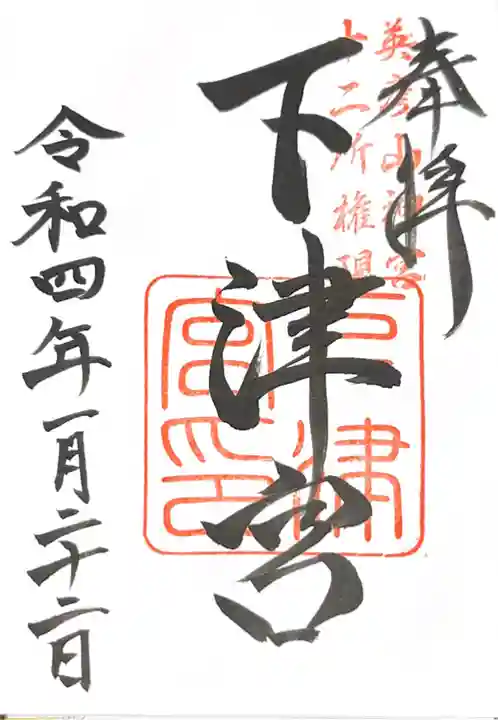 奉拝
英彦山神宮
十二所権現
下津宮
下津宮印
令和四年一月二十二日